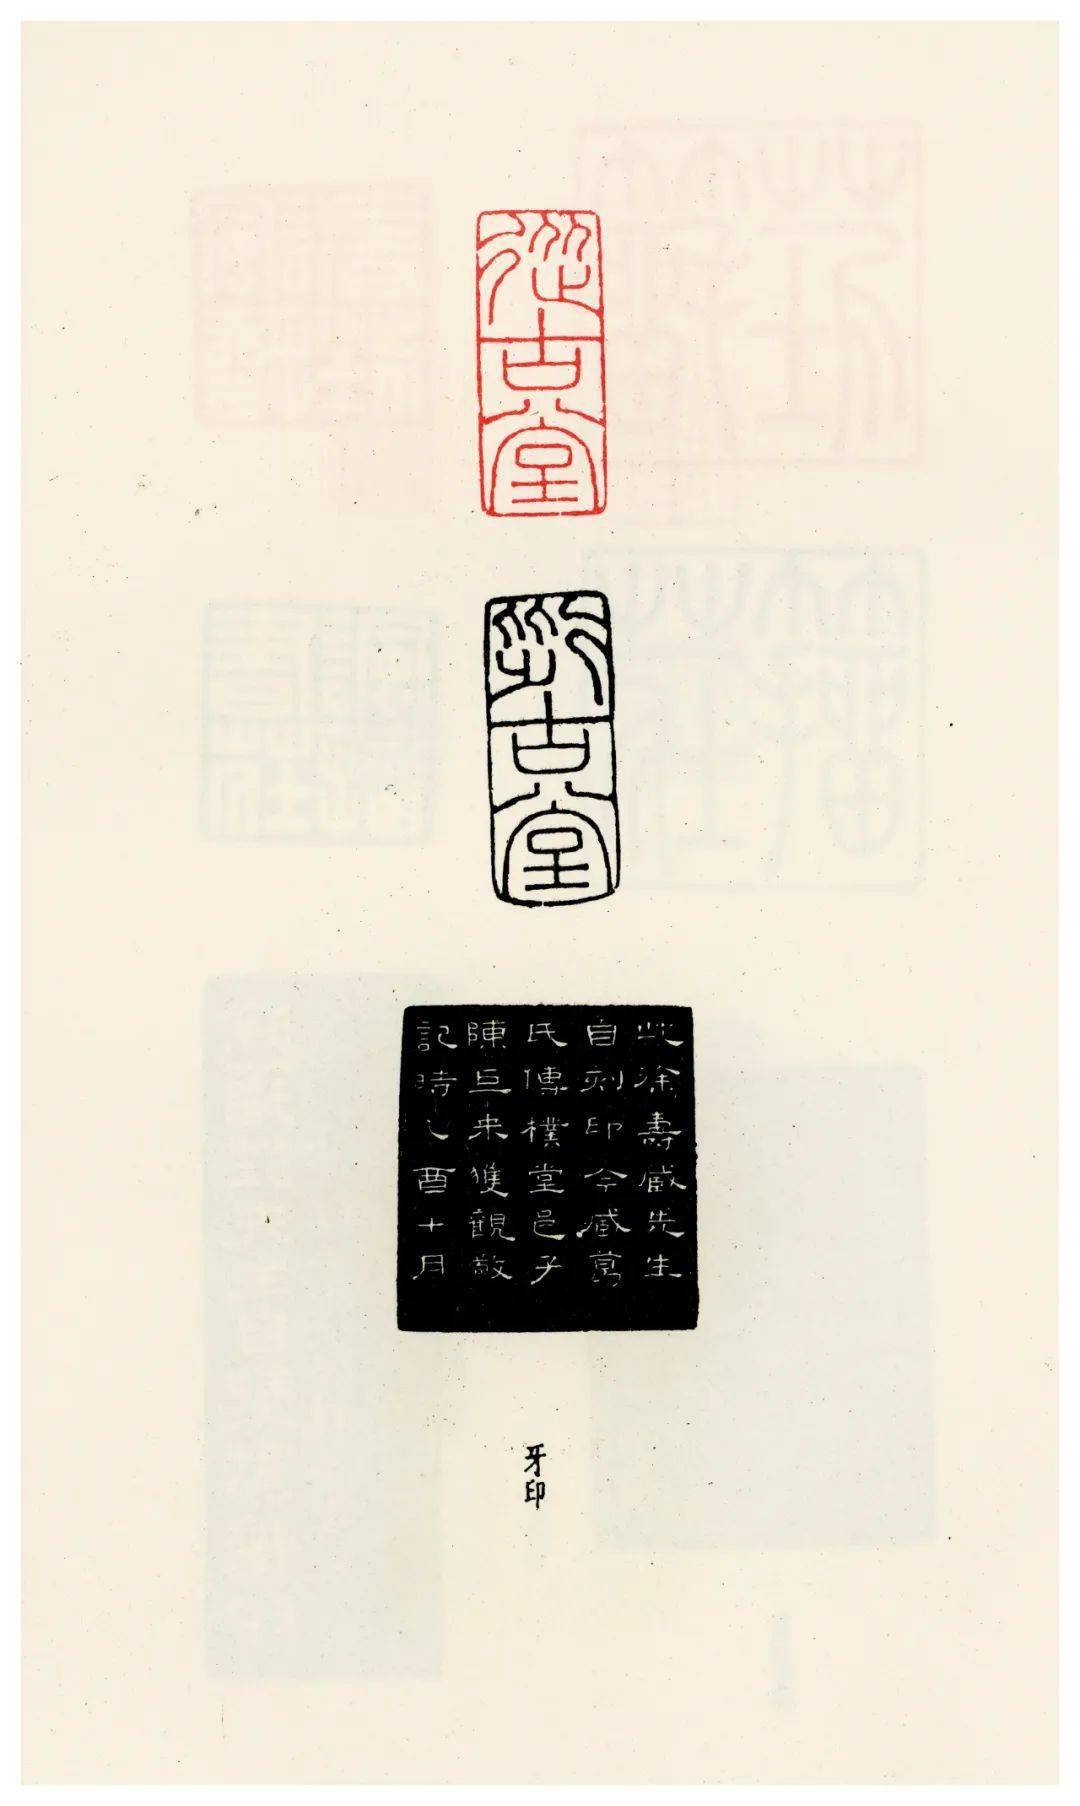 從古堂
從古堂
此徐壽臧先生
自刻印今臧葛
氏傳樸堂邑子
陳巨來獲觀敬
記時乙酉十月
牙印